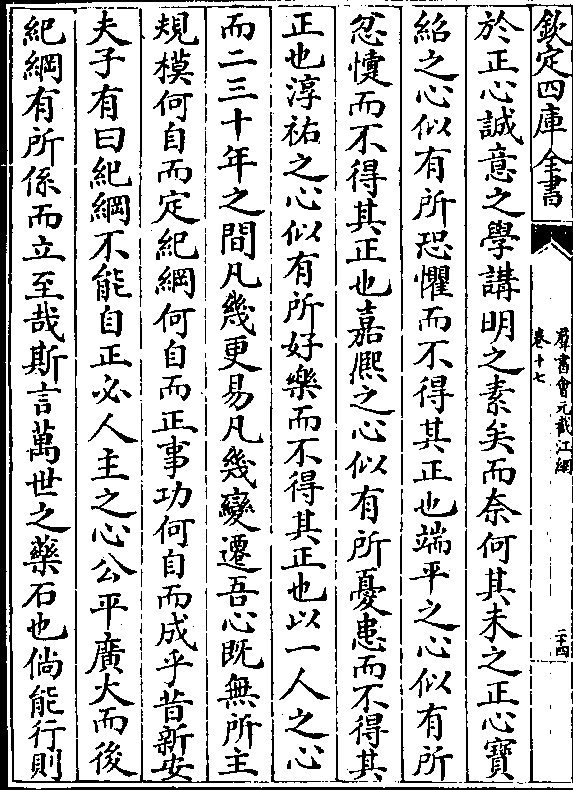 欽定四庫全書
羣書會元截江網
卷十七
二十四
於正心誠意之學講明之素矣而奈何其未之正心寶
紹之心似有所恐懼而不得其正也端平之心似有所
忿懥而不得其正也嘉熙之心似有所憂患而不得其
正也淳祐之心似有所好樂而不得其正也以一人之心
而二三十年之間凡幾更易凡幾變遷吾心既無所主
規模何自而定紀綱何自而正事功何自而成乎昔新安
夫子有曰紀綱不能自正必人主之心公平廣大而後
紀綱有所係而立至哉斯言萬世之藥石也倘能行則